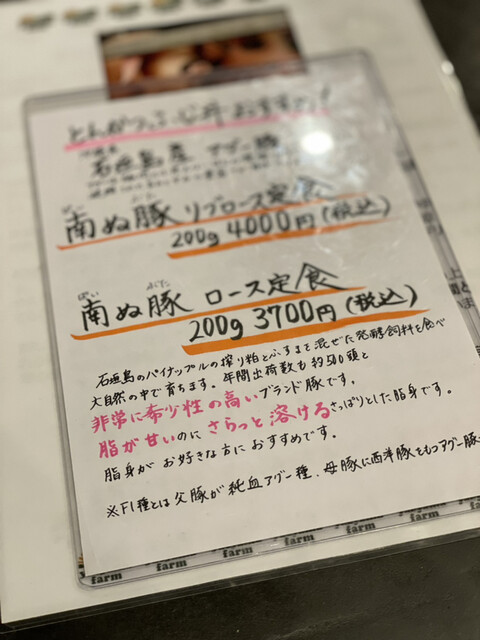 石垣島産 アグー豚
南ぬ豚 リブロース定食
200g 4000円(税込)
ぱい ぶた
南ぬ豚 ロース定食
200g 3700円(税込)
石垣島のパイナップルの搾り粕とふすまを混ぜた発酵飼料を食べ
大自然の中で育ちます。年間出荷数も約500頭と
非常に希少性の高いブランド豚です。
脂が甘いのにさらっと溶けるさっぱりとした脂身です。
脂身がお好きな方におすすめです。
※F1種とは父豚が純血アグー種、母豚に西洋豚をもつアグー豚
farm farm farm farm